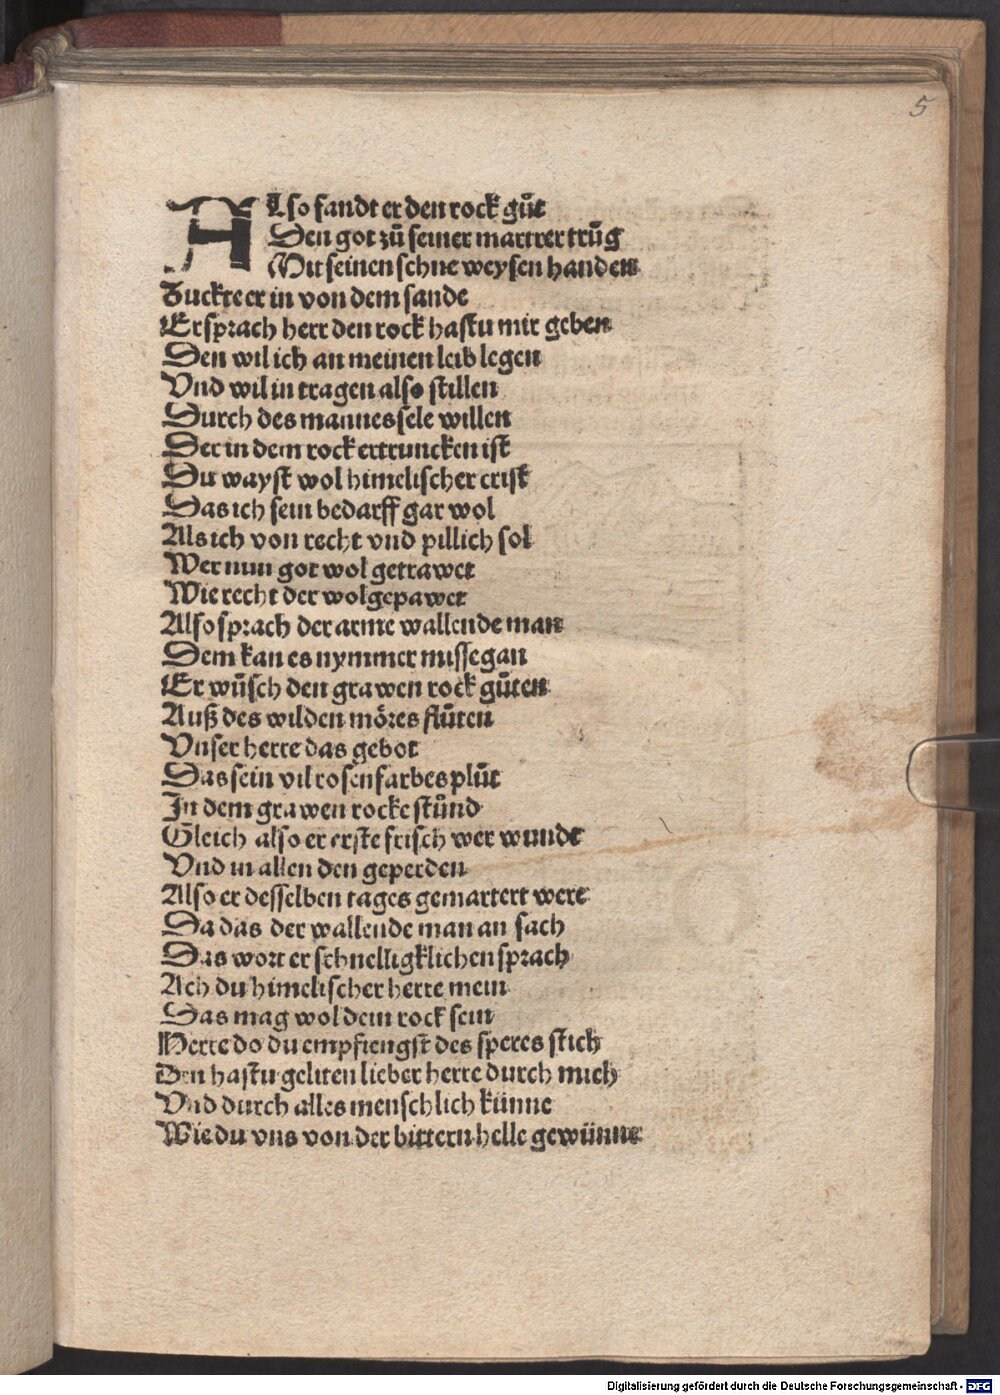 5
Also fandt er den rock gůt
Den got zů seiner martrer trůg
Mit seinen schne weysen handen
Zuckte er in von dem sande
Er sprach herr den rock hastu mir geben
Den wil ich an meinen leib legen
Vnd wil in tragen also stillen
Durch des mannes sele willen
Der in dem rock ertruncken ist
Du wayst wol himelischer crist
Das ich sein bedarff gar wol
Als ich von recht vnd pillich sol
Wer nun got wol getrawet
Wie recht der wol gepawet
Also sprach der arme wallende man
Dem kan es nymmer missegan
Er wůsch den grawen rock gůten
Auß des wilden möres flůten
Vnser herre das gebot
Das sein vil rosenfarbes plůt
In dem grawen rocke stůnd
Gleich also er erste frisch wer wundt
Vnd in allen den geperden
Also er desselben tages gemartert were
Da das der wallende man an sach
Das wort er schnelligklichen sprach
Ach du himelischer herre mein
Das mag wol dein rock sein
Herre do du empfiengst des speres stich
Den hastu geliten lieber herre durch mich
Vnd durch alles menschlich künne
Wie du vns von der bittern helle gewünne
Digitalisierung gefördert durch die Deutsche Forschungsgemeinschaft - DFG